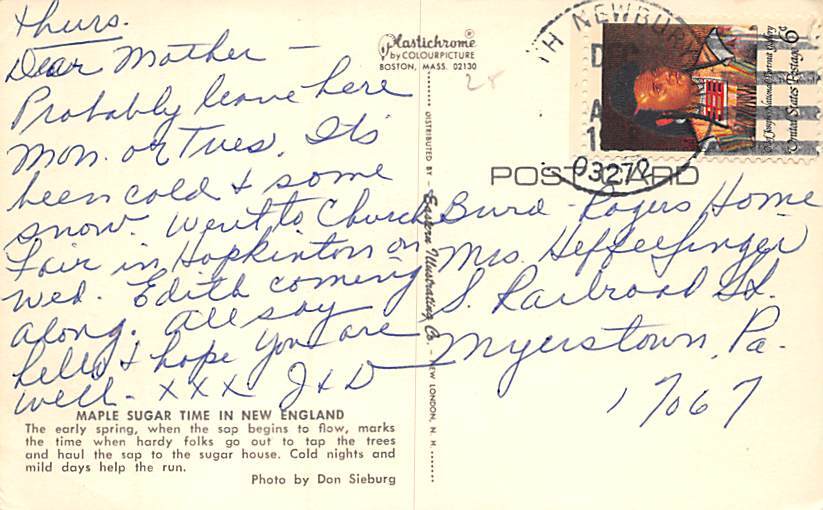 Thurs.
Dear Mother –
Probably leave here
Mon. or Tues. It's
been cold & some
snow. Went to Church
Fair in Hopkinton on
Wed. Edith coming
along. All say
hello & hope you are
well – X X X J & D
MAPLE SUGAR TIME IN NEW ENGLAND
The early spring, when the sap begins to flow, marks
the time when hardy folks go out to tap the trees
and haul the sap to the sugar house. Cold nights and
mild days help the run.
Photo by Don Sieburg
Plastichrome®
by COLOURPICTURE
BOSTON, MASS. 02130
28
DISTRIBUTED BY – Eastern Illustrating Co. – NEW LONDON, N. H.
TH NEWBURY
DEC
03272
Chief Joseph National Portrait Gallery
United States Postage 6¢
POST CARD
Burd-Rogers Home
Mrs. Heffelfinger
S. Railroad St.
Myerstown, Pa.
17067